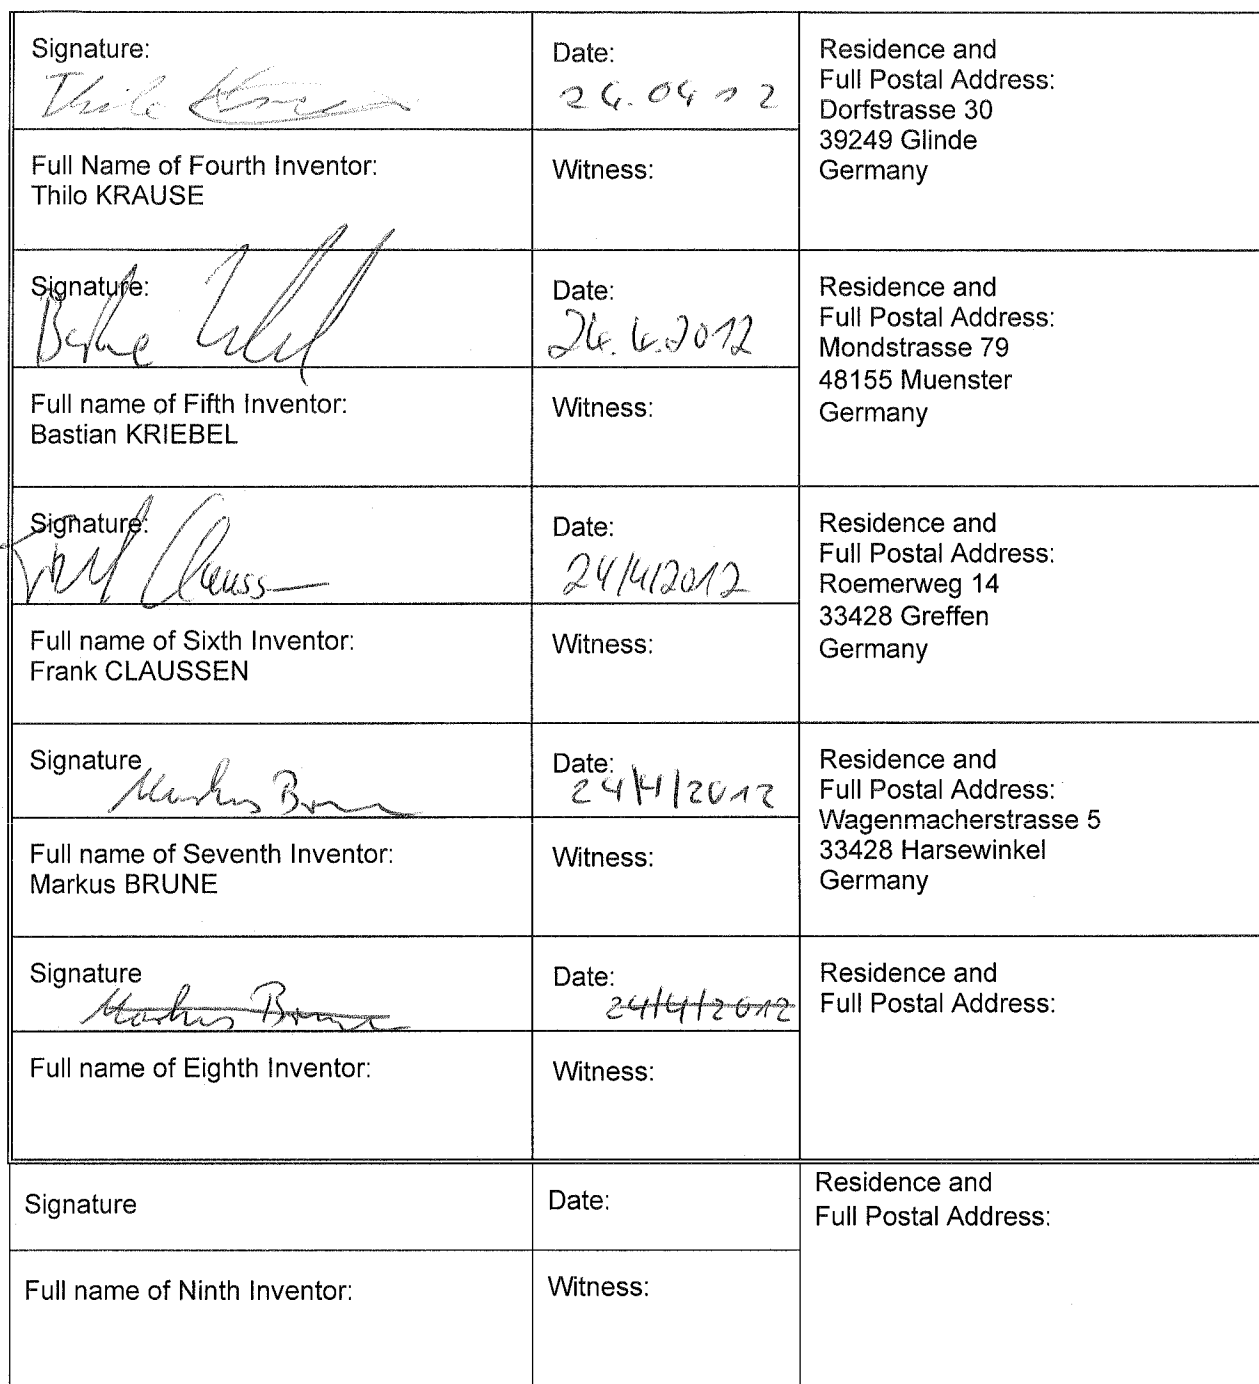 Signature:
Thilo Krause
Date:
24.04.12
Residence and
Full Postal Address:
Dorfstrasse 30
39249 Glinde
Germany
Full Name of Fourth Inventor:
Thilo KRAUSE
Witness:
Signature:
Date:
24.4.2012
Residence and
Full Postal Address:
Mondstrasse 79
48155 Muenster
Germany
Full name of Fifth Inventor:
Bastian KRIEBEL
Witness:
Signature:
Frank Claussen
Date:
24/4/2012
Residence and
Full Postal Address:
Roemerweg 14
33428 Greffen
Germany
Full name of Sixth Inventor:
Frank CLAUSSEN
Witness:
Signature
Markus Brune
Date:
24/4/2012
Residence and
Full Postal Address:
Wagenmacherstrasse 5
33428 Harsewinkel
Germany
Full name of Seventh Inventor:
Markus BRUNE
Witness:
Signature
Markus Brune
Date:
24/4/2012
Residence and
Full Postal Address:
Full name of Eighth Inventor:
Witness:
Signature
Date:
Residence and
Full Postal Address:
Full name of Ninth Inventor:
Witness: